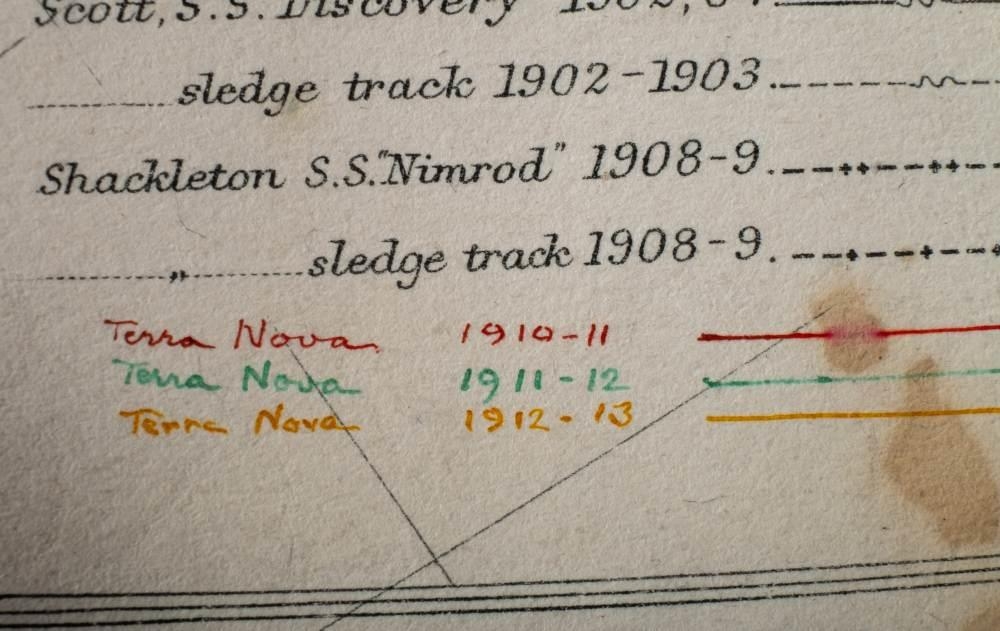 Scott, S.S. Discovery 1902,
sledge track 1902-1903
Shackleton S.S."Nimrod" 1908-9
„ sledge track 1908-9
Terra Nova 1910-11
Terra Nova 1911-12
Terra Nova 1912-13